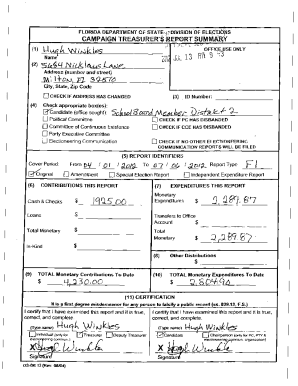 FLORIDA DEPARTMENT OF STATE, DIVISION OF ELECTIONS
CAMPAIGN TREASURER'S REPORT SUMMARY
(1) Hugh Winkles
Name
OFFICE USE ONLY
(2) 5664 Nicklaus Lane
Address (number and street)
Milton, Fl 32570
City, State, Zip Code
CHECK IF ADDRESS HAS CHANGED
(3) ID Number:
(4) Check appropriate box(es):
Candidate (office sought): School Board Member District 2
Political Committee
CHECK IF PC HAS DISBANDED
Committee of Continuous Existence
CHECK IF CCE HAS DISBANDED
Party Executive Committee
Electioneering Communication
CHECK IF NO OTHER ELECTIONEERING
COMMUNICATION REPORTS WILL BE FILED
(5) REPORT IDENTIFIERS
Cover Period: From 04 / 01 / 2012 To 07 / 06 / 2012 Report Type F1
Original Amendment Special Election Report Independent Expenditure Report
(6) CONTRIBUTIONS THIS REPORT
Cash & Checks $ 1925.00
Loans $
Total Monetary $
In-Kind $
(7) EXPENDITURES THIS REPORT
Monetary
Expenditures $ 2,289.87
Transfers to Office
Account $
Total
Monetary $ 2,289.87
(8) Other Distributions
$
(9) TOTAL Monetary Contributions To Date
$ 4,230.00
(10) TOTAL Monetary Expenditures To Date
$ 2,804.90
(11) CERTIFICATION
It is a first degree misdemeanor for any person to falsify a public record (ss. 839.13, F.S.)
I certify that I have examined this report and it is true,
correct, and complete
(Type name) Hugh Winkles
Treasurer Deputy Treasurer
X Hugh Winkles
Signature
I certify that I have examined this report and it is true,
correct, and complete
(Type name) Hugh Winkles
Candidate
X Hugh Winkles
Signature